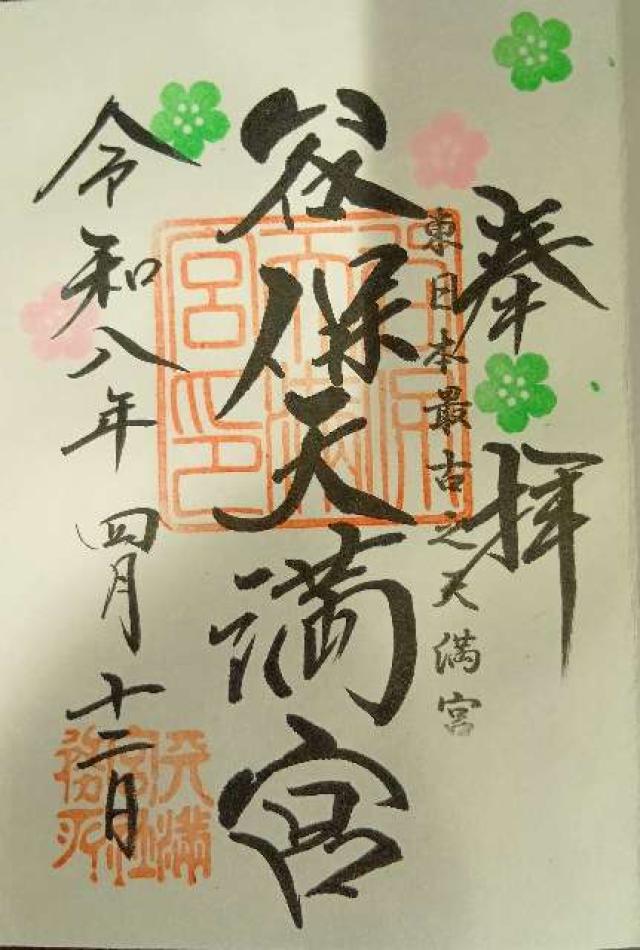 奉拝
東日本最古之天満宮
谷保天満宮
令和八年四月十二日